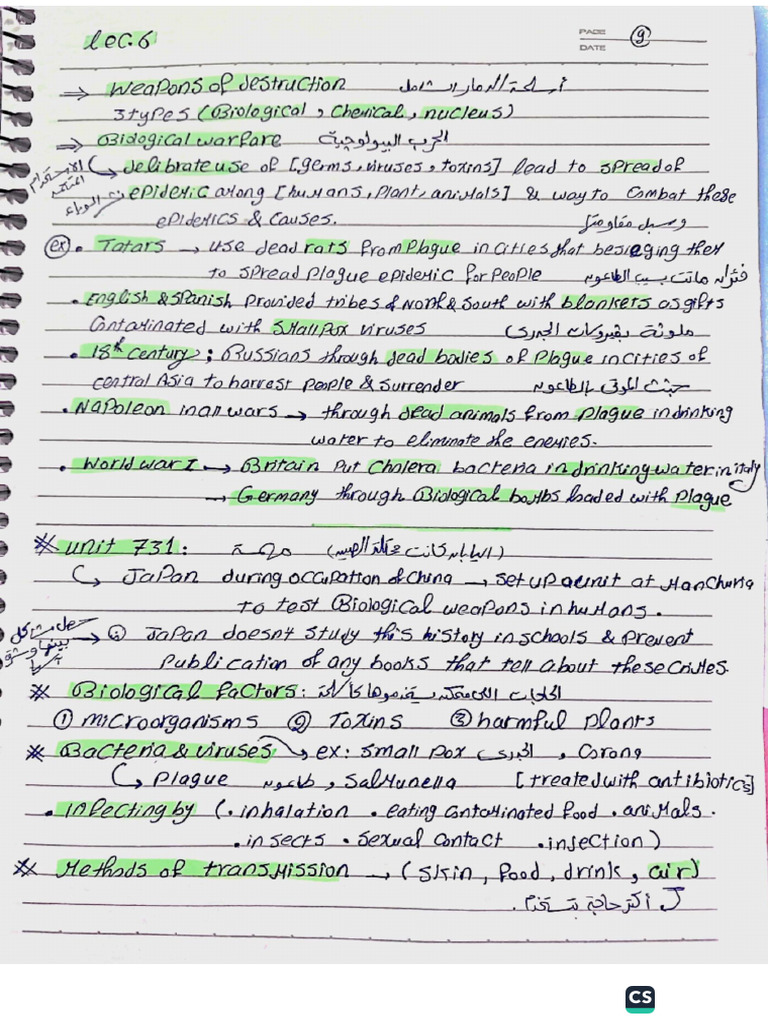 lec.6
PAGE
DATE
9
→ Weapons of destruction أسلحة الدمار الشامل
3 types (Biological, Chemical, nucleus)
→ Biological warfare الحرب البيولوجية
↳ delibrate use of [germs, viruses, toxins] lead to spread of
الاستخدام
epidemic among [humans, Plant, animals] & way to Combat these
الوباء
epidemics & Causes. وسبل مقاومتها
(ex) • Tatars → use dead rats from Plague in Cities that besieging they
to spread Plague epidemic for People فئران ماتت بسبب الطاعون
• English & Spanish Provided tribes of North & South with blankets as gifts
Contaminated with Smallpox viruses ملوثة بفيروسات الجدري
• 18th Century; Russians through dead bodies of Plague in Cities of
central Asia to harvest People & Surrender جثث الموتى بالطاعون
• Napoleon in all wars → through dead animals from Plague in drinking
water to eliminate the enemies.
• World war I → Britain Put Cholera bacteria in drinking water in italy
→ Germany through Biological bombs loaded with Plague
* unit 731: مهمة (اليابان كانت محتلة الصين)
↳ Japan during occupation of China → set up a unit at Manchuria
to test Biological weapons in humans.
→ Japan doesn't study this history in schools & Prevent
بينها و
Publication of any books that tell about these Crimes.
* Biological factors:
① microorganisms ② Toxins ③ harmful plants
* Bacteria & viruses → ex: small pox الجدري, Corona
↳ Plague طاعون, Salmunella [treated with antibiotics]
• Infecting by (• inhalation • eating Contaminated food • animals.
• insects • Sexual Contact • injection)
* Methods of transmission → (Skin, food, drink, air)
أكتر حاجة بتستخدم.
CS